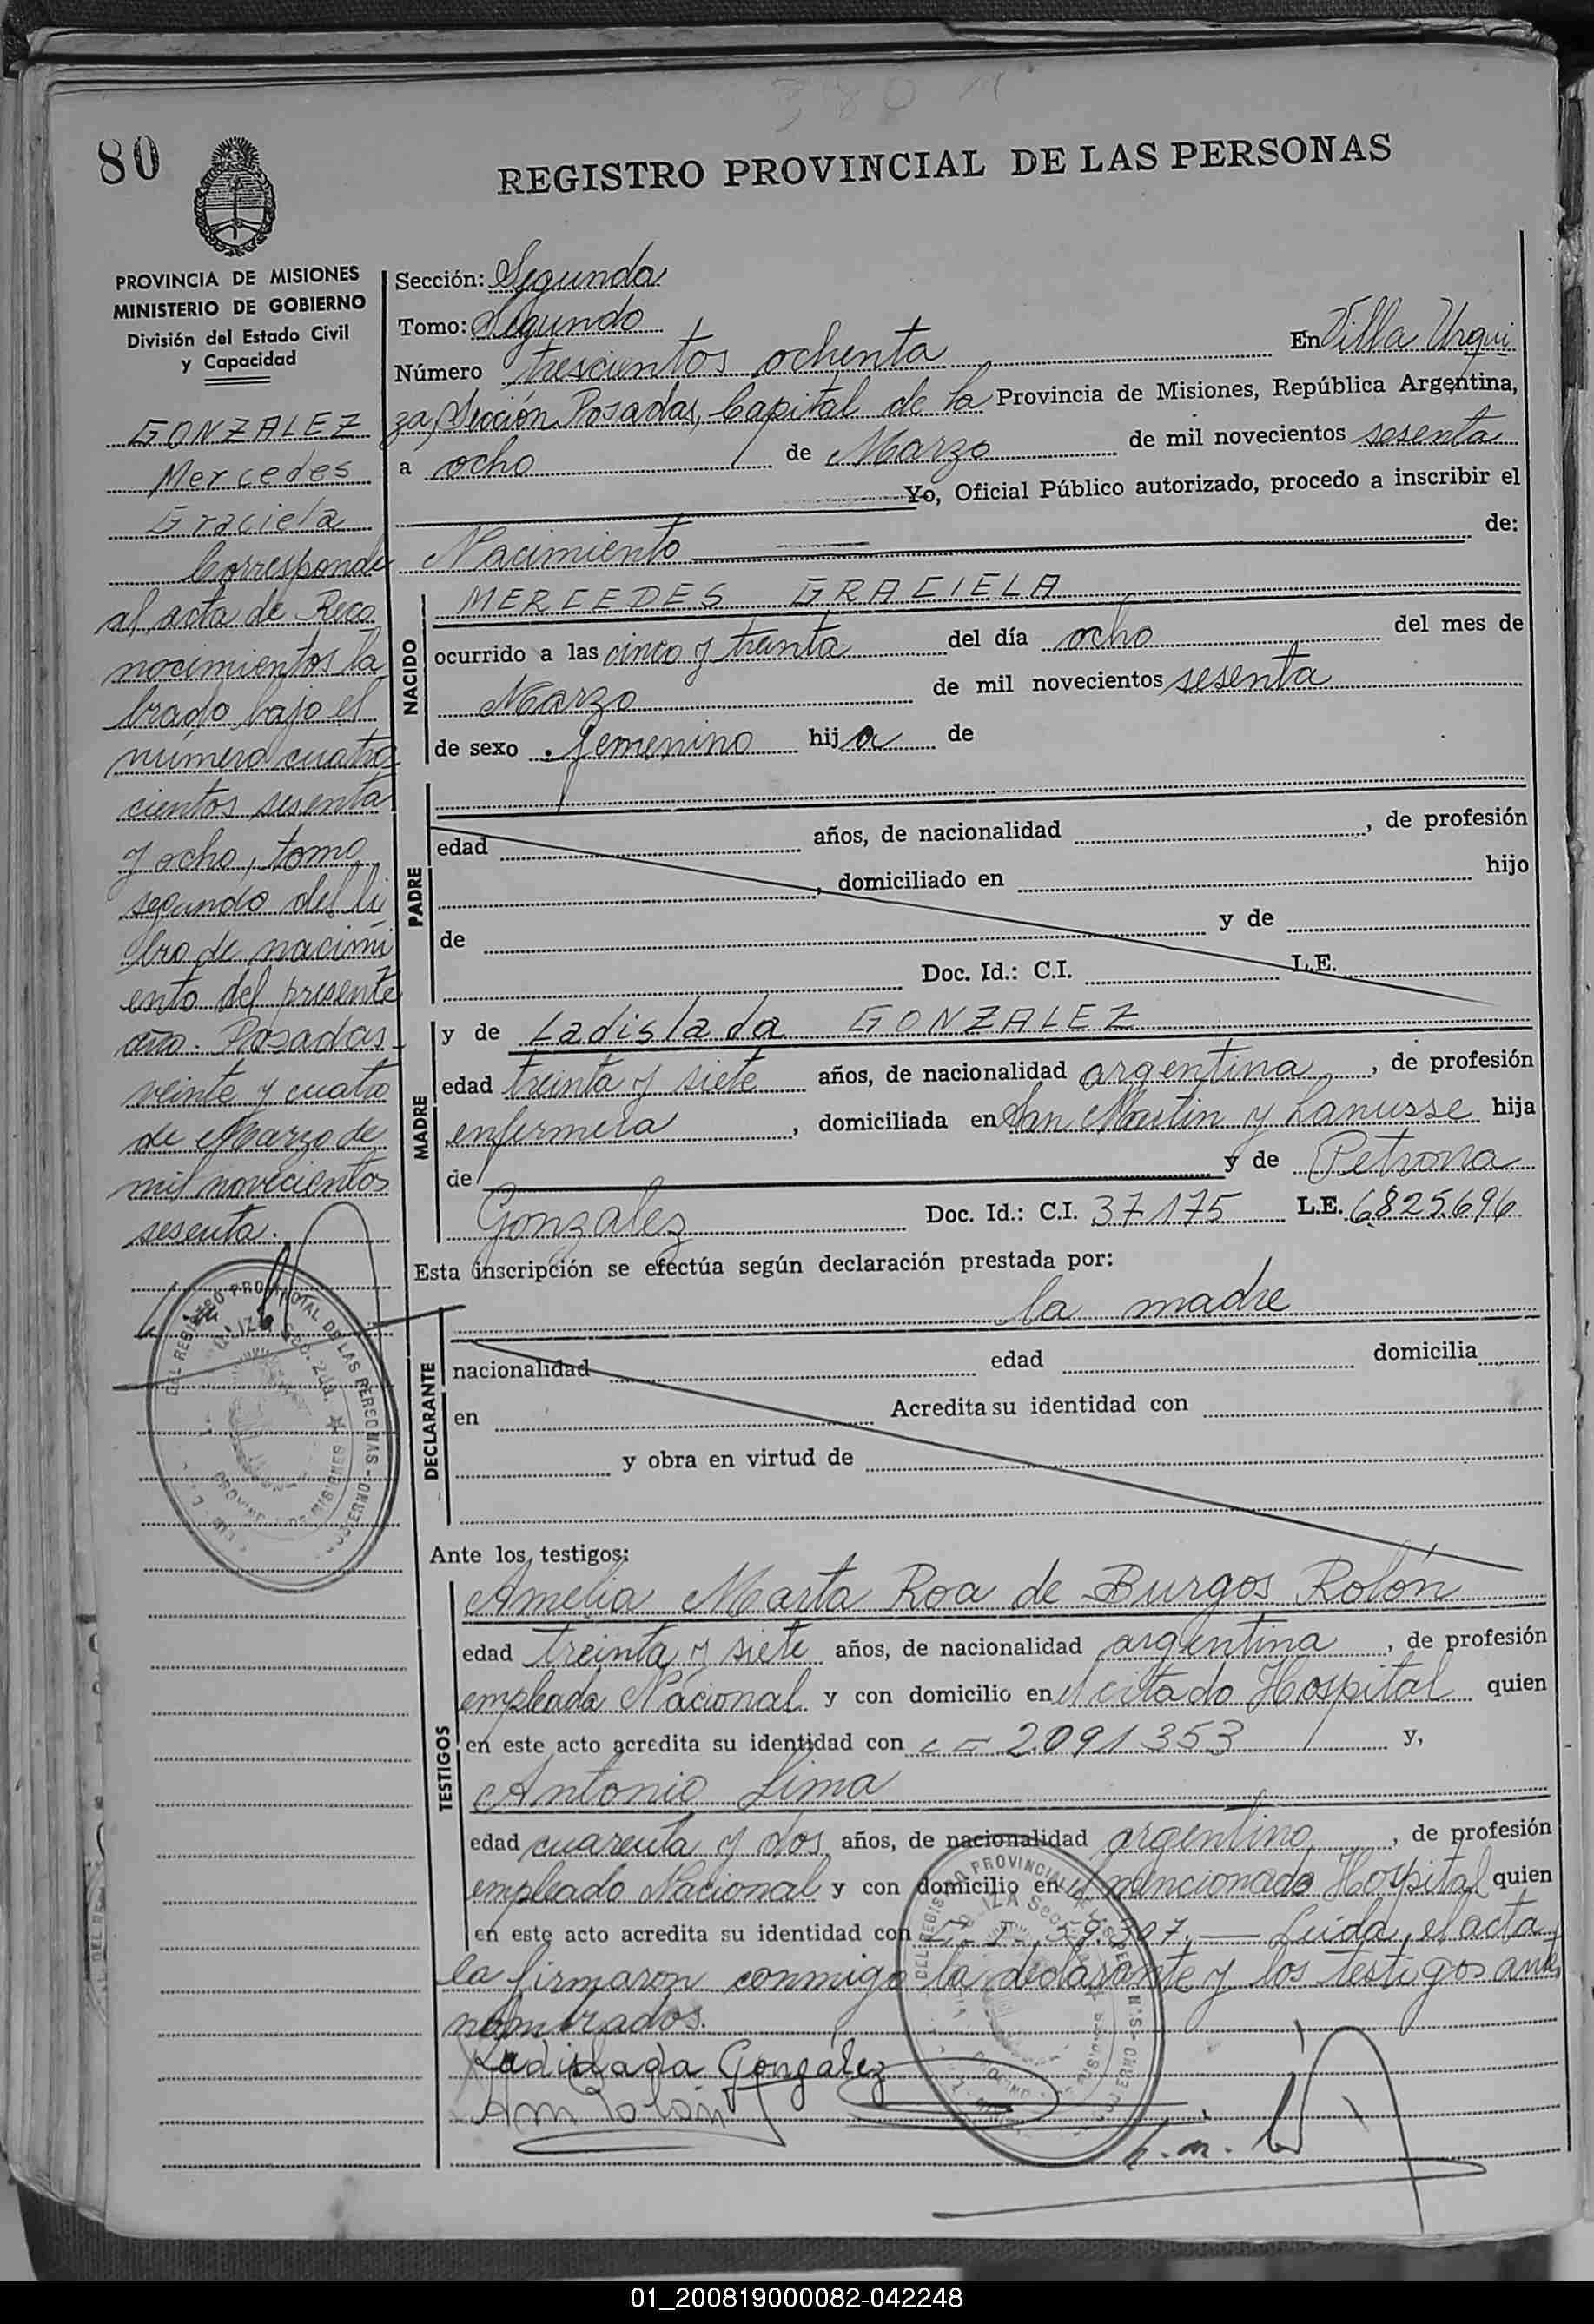 380
80
REGISTRO PROVINCIAL DE LAS PERSONAS
PROVINCIA DE MISIONES
MINISTERIO DE GOBIERNO
División del Estado Civil
y Capacidad
GONZALEZ
Mercedes
Graciela
Corresponde
al acta de Reco
nocimientos la
brado bajo el
número cuatro
cientos sesenta
y ocho, tomo
segundo del li
bro de nacimi
ento del presente
año. Posadas
veinte y cuatro
de Marzo de
mil novecientos
sesenta.
Sección: Segunda
Tomo: Segundo
Número trescientos ochenta En Villa Urqui
za, Sección Posadas, Capital de la Provincia de Misiones, República Argentina,
a ocho de Marzo de mil novecientos sesenta
Yo, Oficial Público autorizado, procedo a inscribir el
Nacimiento de:
NACIDO
MERCEDES GRACIELA
ocurrido a las cinco y treinta del día ocho del mes de
Marzo de mil novecientos sesenta
de sexo femenino hija de
PADRE
edad años, de nacionalidad , de profesión
, domiciliado en hijo
de y de
Doc. Id.: C.I. L.E.
MADRE
y de Ladislada GONZALEZ
edad treinta y siete años, de nacionalidad argentina , de profesión
enfermera , domiciliada en San Martin y Lanusse hija
de y de Petrona
Gonzalez Doc. Id.: C.I. 37175 L.E. 6825.696
Esta inscripción se efectúa según declaración prestada por:
DECLARANTE
la madre
nacionalidad edad domicilia
en Acredita su identidad con
y obra en virtud de
Ante los testigos:
TESTIGOS
Amelia Marta Roa de Burgos Rolón
edad treinta y siete años, de nacionalidad argentina , de profesión
empleada Nacional y con domicilio en el citado Hospital quien
en este acto acredita su identidad con 2.091.353 y,
Antonio Lima
edad cuarenta y dos años, de nacionalidad argentino , de profesión
empleado Nacional y con domicilio en el mencionado Hospital quien
en este acto acredita su identidad con C. I. 59.307. Leida el acta
la firmaron conmigo la declarante y los testigos ante
nombrados.
Ladislada González
01_200819000082-042248